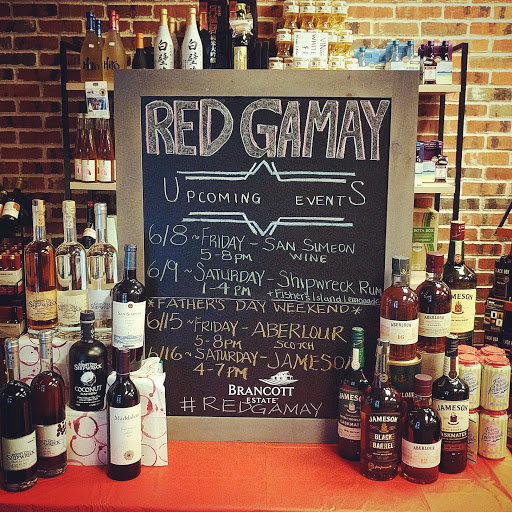 RED GAMAY
UPCOMING EVENTS
6/8 ~ FRIDAY - SAN SIMEON
5-8PM WINE
6/9 ~ SATURDAY - SHIPWRECK RUM
1-4 PM + Fisher's Island Lemonade
*FATHER'S DAY WEEKEND*
6/15 ~ FRIDAY - ABERLOUR
5-8PM SCOTCH
6/16 ~ SATURDAY - JAMESON
4-7PM
BRANCOTT
ESTATE
#REDGAMAY
白壁
白壁
SAN SIMEON
SHIPWRECK
COCONUT
SHIPWRECK
Maddalena
ABERLOUR
16
ABERLOUR
JAMESON
JAMESON
JAMESON
BLACK
BARREL
ABERLOUR
12
JAMESON
CASKMATES